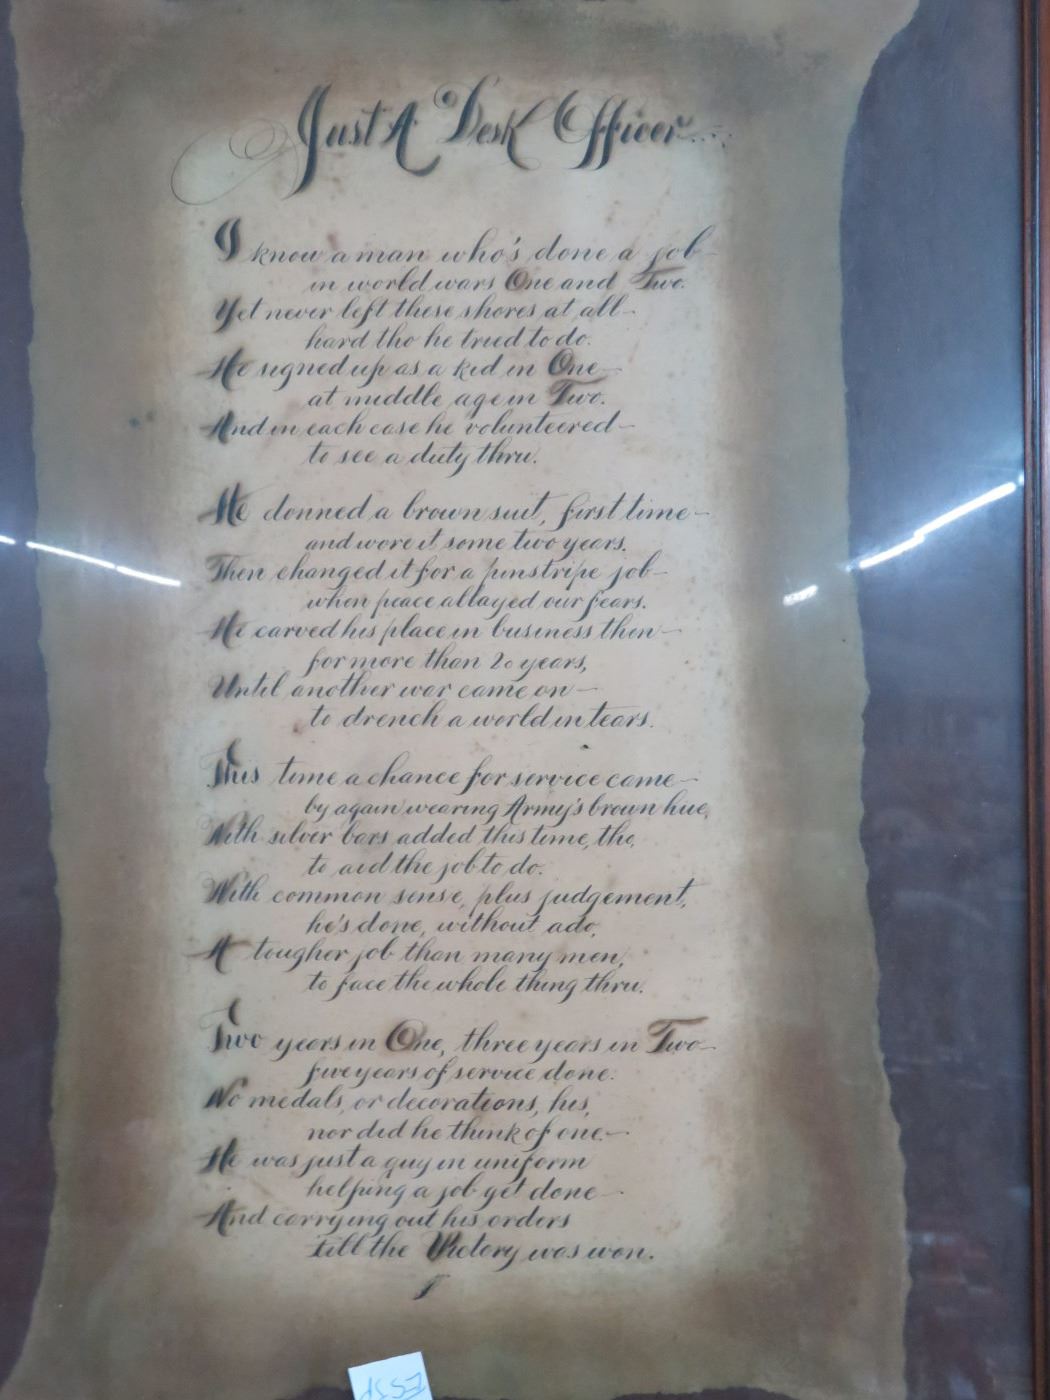 Just A Desk Officer....
I know a man who's done a job-
in world wars One and Two.
Yet never left these shores at all-
hard tho he tried to do.
He signed up as a kid in One-
at middle age in Two.
And in each case he volunteered-
to see a duty thru.
He donned a brown suit, first time-
and wore it some two years.
Then changed it for a pinstripe job-
when peace allayed our fears.
He carved his place in business then-
for more than 20 years,
Until another war came on-
to drench a world in tears.
This time a chance for service came-
by again wearing Army's brown hue,
With silver bars added this time, tho,
to aid the job to do.
With common sense, plus judgement,
he's done, without ado,
A tougher job than many men,
to face the whole thing thru.
Two years in One, three years in Two-
five years of service done.
No medals, or decorations, his,
nor did he think of one.-
He was just a guy in uniform
helping a job get done-
And carrying out his orders
till the Victory was won.